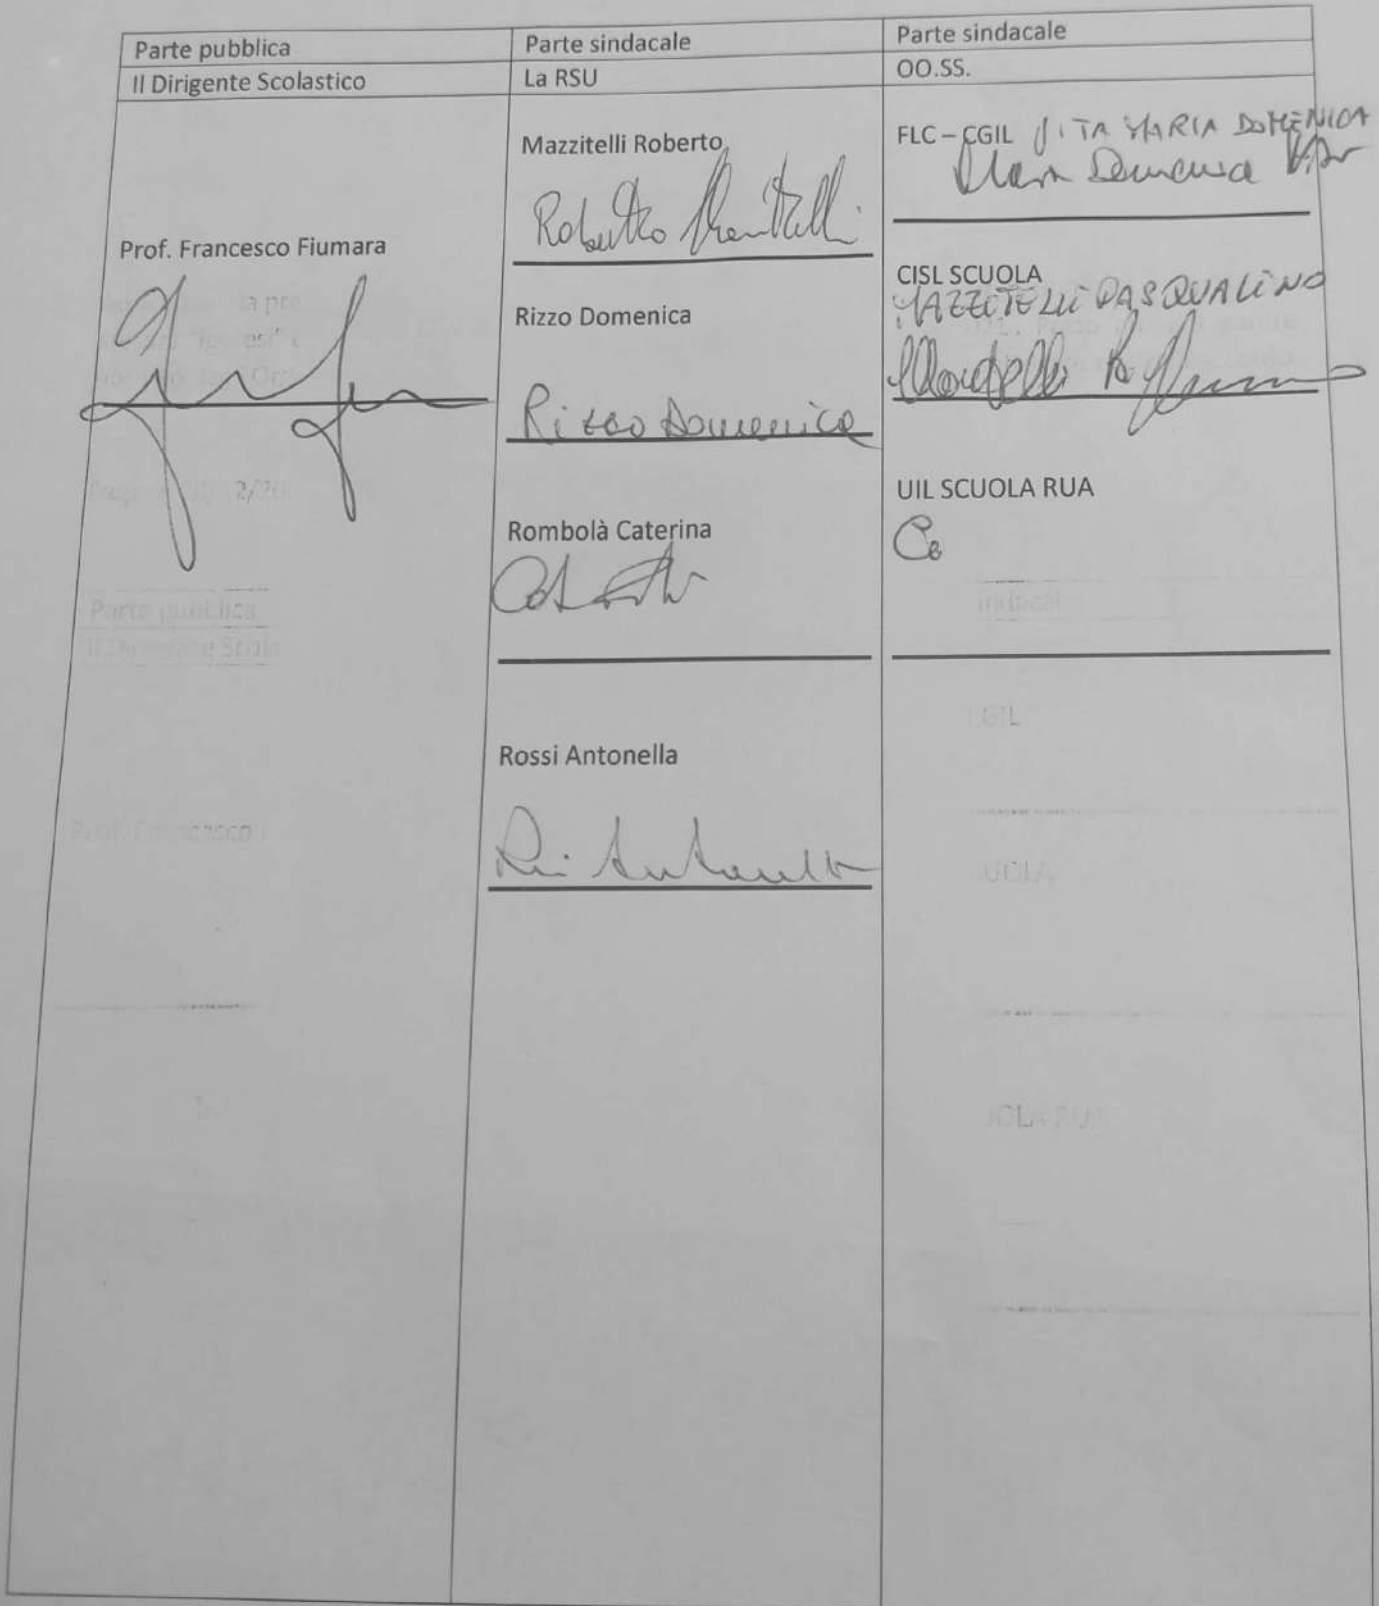 Parte pubblica
Parte sindacale
Parte sindacale
Il Dirigente Scolastico
La RSU
OO.SS.
Prof. Francesco Fiumara
Mazzitelli Roberto
Roberto Mazzitelli
Rizzo Domenica
Rizzo Domenica
Rombolà Caterina
Rossi Antonella
Antonella
FLC – CGIL VITA MARIA DOMENICA
Maria Domenica Vita
CISL SCUOLA
MAZZITELLI PASQUALINO
UIL SCUOLA RUA